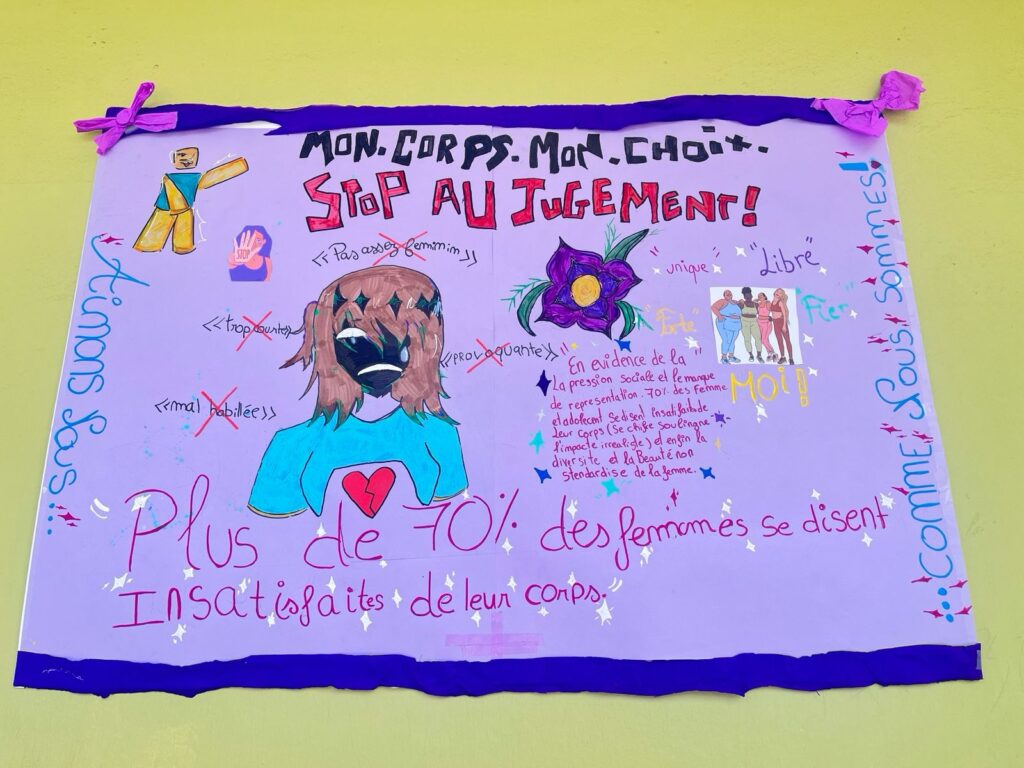 MON.CORPS.MON.CHOix.
STOP AU JUGEMENT!
STOP
<<Pas assez feminin>>
<<trop courte>>
<<provoquante>>
<<mal habillée>>
Aimons Nous...
"unique"
"Libre"
"Forte"
"Fier"
MOi!
"En evidence de la"
La pression sociale et le manque
de representation. 70% des femme
et adolecent se disent insatisfaits de
leur corps (se chifre soulingne
l'impacte irrealiste) et enfin la
diversite et la Beauté non
stendardise de la femme.
...COMME NOUS SOMMES!
Plus de 70% des femmes se disent
Insatisfaites de leur corps.